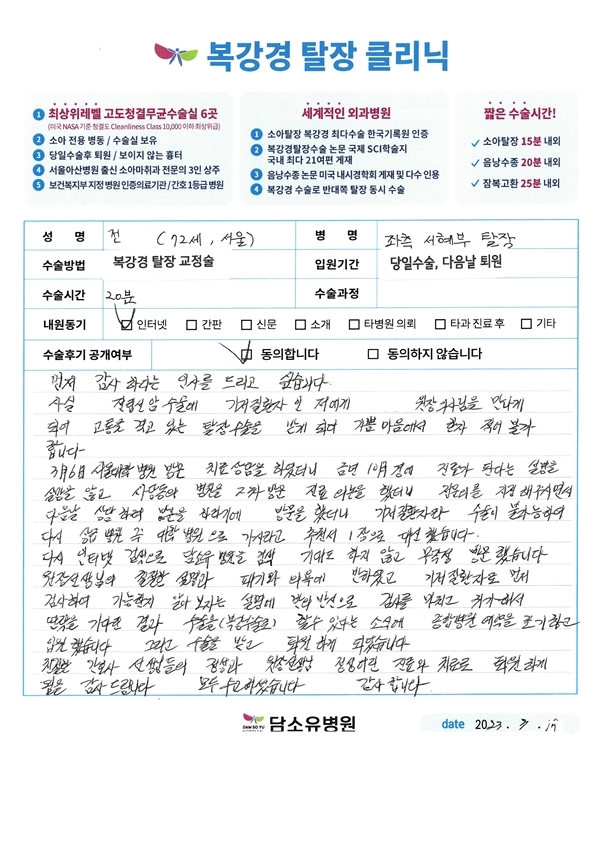 복강경 탈장 클리닉
1 최상위레벨 고도청결무균수술실 6곳
(미국 NASA 기준 청결도 Cleanliness Class 10,000 이하 최상위급)
2 소아 전용 병동 / 수술실 보유
3 당일수술후 퇴원 / 보이지 않는 흉터
4 서울아산병원 출신 소아마취과 전문의 3인 상주
5 보건복지부 지정 병원 인증의료기관 / 간호 1등급 병원
세계적인 외과병원
1 소아탈장 복강경 최다수술 한국기록원 인증
2 복강경탈장수술 논문 국제 SCI학술지
국내 최다 21여편 게재
3 음낭수종 논문 미국 내시경학회 게재 및 다수 인용
4 복강경 수술로 반대쪽 탈장 동시 수술
짧은 수술시간!
소아탈장 15분 내외
음낭수종 20분 내외
잠복고환 25분 내외
성 명 전 (72세, 서울) 병 명 좌측 서혜부 탈장
수술방법 복강경 탈장 교정술 입원기간 당일수술, 다음날 퇴원
수술시간 20분 수술과정
내원동기 인터넷 간판 신문 소개 타병원 의뢰 타과 진료 후 기타
수술후기 공개여부 동의합니다 동의하지 않습니다
먼저 감사 하다는 인사를 드리고 싶습니다.
사실 전립선암 수술에 기저질환자 인 저에게 원장의사님을 만나게
되어 고통을 겪고 있는 탈장수술을 받게 되어 기쁜 마음에서 몇자 적어 볼까
합니다
3月6日 서울대학 병원 방문 치료 상담을 하였더니 금년 10月경에 진료가 된다는 설명을
듣고 병원을 2차 방문 진료 의뢰를 했더니 전문의를
다음날 방문을 했더니 기저질환자라 수술이 불가능하여
다시 상급 병원 곡 대학 병원으로 가시라고 추천서 1장으로 대신 했습니다.
다시 인터넷 검색으로 담소유병원을 검색 기대도 하지 않고 무작정 방문 했습니다
원장선생님의 친절한 설명과 대기와 의욕에 반하였고 기저질환자로 먼저
검사하여 가능한지 알아 보자는 설명에 반신반신으로 검사를 마치고 귀가해서
연락을 기다린 결과 수술을 할수 있다는 소식에 종합병원 예약을 포기하고
입원 했습니다 그리고 수술을 받고 퇴원 하게 되었습니다
친절한 간호사 선생님들의 정성과 원장선생님 정성어린 진료와 치료로 퇴원 하게
됨을 감사 드립니다 모두 수고하셨습니다 감사 합니다.
DAM SO YU 담소유병원
date 2023. 3.